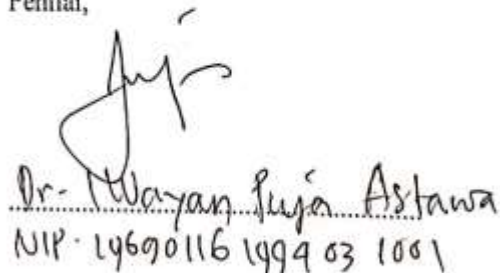 Penilai,
Dr. I Wayan Puja Astawa
NIP. 19690116 1994 03 1001